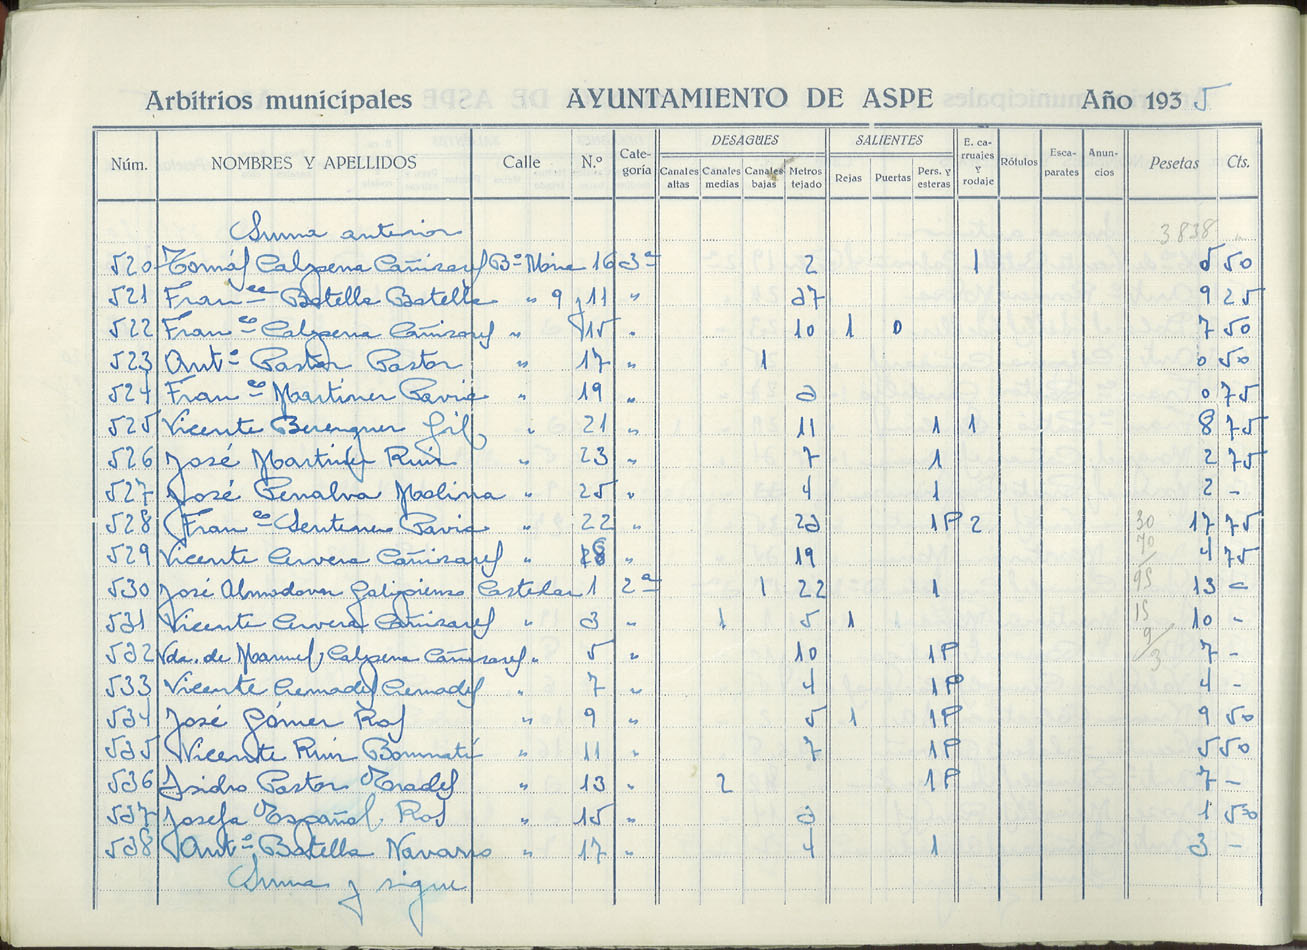 Arbitrios municipales AYUNTAMIENTO DE ASPE Año 1935
Núm. NOMBRES Y APELLIDOS Calle N.º Cate-goría DESAGÜES Canales altas Canales medias Canales bajas Metros tejado SALIENTES Rejas Puertas Pers. y esteras E. ca-rruajes y rodaje Rótulos Esca-parates Anun-cios Pesetas Cts.
Suma anterior 3838 "
520 Tomás Calpena Cañizares Bº Mira 16 3ª 2 1 5 50
521 Franᶜᵃ Botella Botella " 9 y 11 " 37 9 25
522 Franᶜᵒ Calpena Cañizares " 15 " 10 1 0 7 50
523 Antº Pastor Pastor " 17 " 1 0 50
524 Franᶜᵒ Martinez Pavia " 19 " 3 0 75
525 Vicente Berenguer Gil " 21 " 11 1 1 8 75
526 José Martinez Ruiz " 23 " 7 1 2 75
527 José Penalva Molina " 25 " 4 1 2 -
528 Franᶜᵒ Sentenero Pavia " 22 " 23 1P 2 30 17 75
529 Vicente Cervera Cañizares " " 19 70 4 75
530 José Almodovar Galipienso Castelar 1 2ª 1 22 1 95 13 -
531 Vicente Cervera Cañizares " 3 " 1 5 1 15 10 -
532 Vda. de Manuel Calpena Cañizares " 5 " 10 1P 9/3 7 -
533 Vicente Cremades Cremades " 7 " 4 1P 4 -
534 José Gómez Ros " 9 " 5 1 1P 9 50
535 Vicente Ruiz Bonmatí " 11 " 7 1P 5 50
536 Isidro Pastor Prades " 13 " 2 1P 7 -
537 Josefa Español Ros " 15 " 3 1 50
538 Antº Botella Navarro " 17 " 4 1 3 -
Suma y sigue